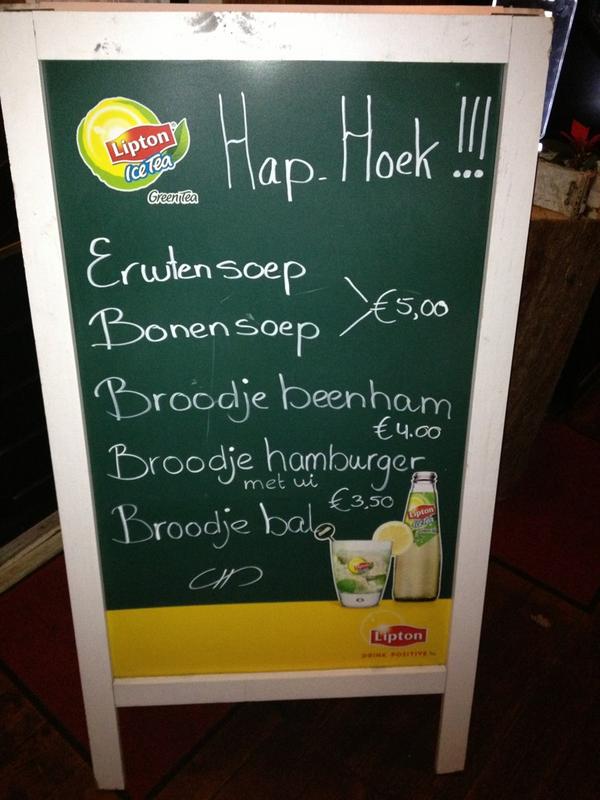 Lipton
Ice Tea
Green Tea
Hap-Hoek!!!
Erwtensoep
Bonensoep
€5,00
Broodje beenham
€4.00
Broodje hamburger
met ui
€3,50
Broodje bal
Lipton
Ice Tea
Lipton
DRINK POSITIVE™